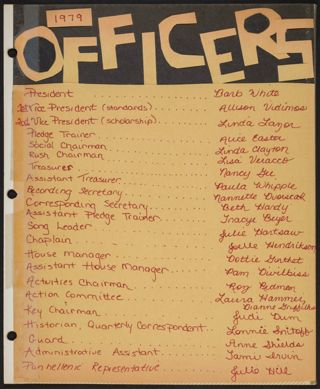 1979
OFFICERS
President . . . . . . . . . . Barb White
1st Vice President (standards) . . . . . . . . . . Allison Vidimos
2nd Vice President (scholarship) . . . . . . . . . . Linda
Pledge Trainer . . . . . . . . . . Alice Easter
Social Chairman . . . . . . . . . . Linda Clayton
Rush Chairman . . . . . . . . . . Lisa Veracco
Treasurer . . . . . . . . . . Nancy
Assistant Treasurer . . . . . . . . . . Paula Whipple
Recording Secretary . . . . . . . . . . Nannette Dvorscak
Corresponding Secretary . . . . . . . . . . Beth Hardy
Assistant Pledge Trainer . . . . . . . . . . Tracye Beyer
Song Leader . . . . . . . . . . Julie Hartsaw
Chaplain . . . . . . . . . . Julle Hendrikson
House Manager . . . . . . . . . . Dottie
Assistant House Manager . . . . . . . . . . Pam Divelbiss
Activities Chairman . . . . . . . . . . Roz Redmon
Action Committee . . . . . . . . . . Laura Hammer,
Dianne Griffith
Key Chairman . . . . . . . . . . Judi Dum
Historian, Quarterly Correspondent . . . . . . . . . . Lonnie
Guard . . . . . . . . . . Anne Shields
Administrative Assistant . . . . . . . . . . Tami Irvin
Panhellenic Representative . . . . . . . . . . Julie Hill